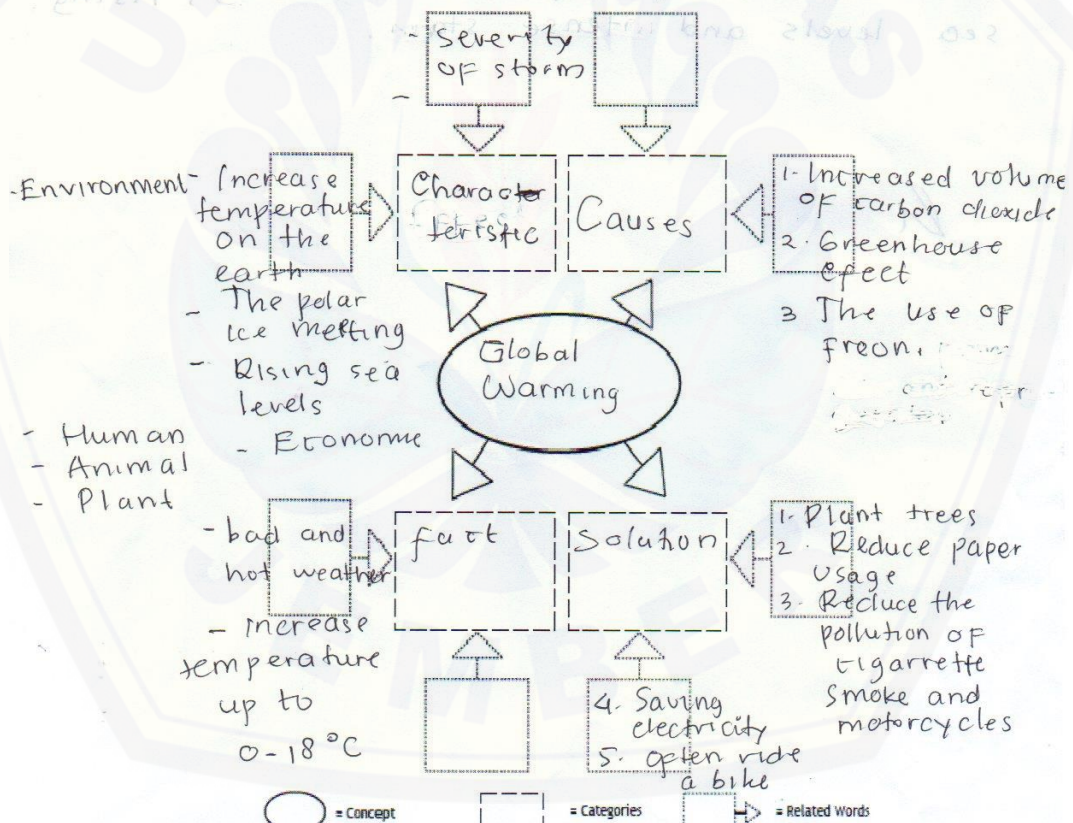 - Severity
of storm
-
-Environment
- Increase
temperature
on the
earth
- The polar
ice melting
- Rising sea
levels
- Economic
Charac
teristic
Causes
1. Increased volume
of carbon dioxide
2. Greenhouse
efect
3 The use of
freon.
Global
Warming
- Human
- Animal
- Plant
- bad and
hot weather
- increase
temperature
up to
0-18°C
fact
Solution
1. Plant trees
2. Reduce paper
usage
3. Reduce the
pollution of
cigarrette
smoke and
motorcycles
4. Saving
electricity
5. often ride
a bike
= Concept
= Categories
= Related Words